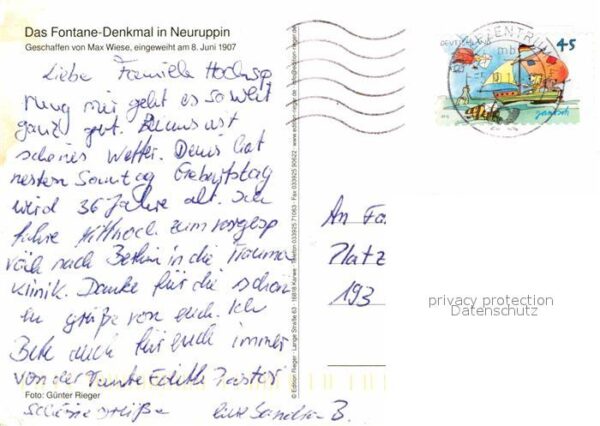 Das Fontane-Denkmal in Neuruppin
Geschaffen von Max Wiese, eingeweiht am 8. Juni 1907
Liebe Familie Hochsp
rung mir geht es so weit
ganz gut. Bei uns ist
schönes Wetter. Denis hat
nesten Sonntag Geburtstag
wird 36 Jahre alt. Ich
fahre Mittwoch zum vorgesp
räch nach Berlin in die Trauma
Klinik. Danke für die schön
en grüße von euch. Ich
Bete auch für euch immer
von der Tante Edith
Foto: Günter Rieger
Schöne grüße eure Sandra B.
© Edition Rieger · Lange Straße 63 · 16818 Karwe
DEUTSCHLAND
45
janosch
ZENTRUM
An Fa.
Platz
193
privacy protection
Datenschutz